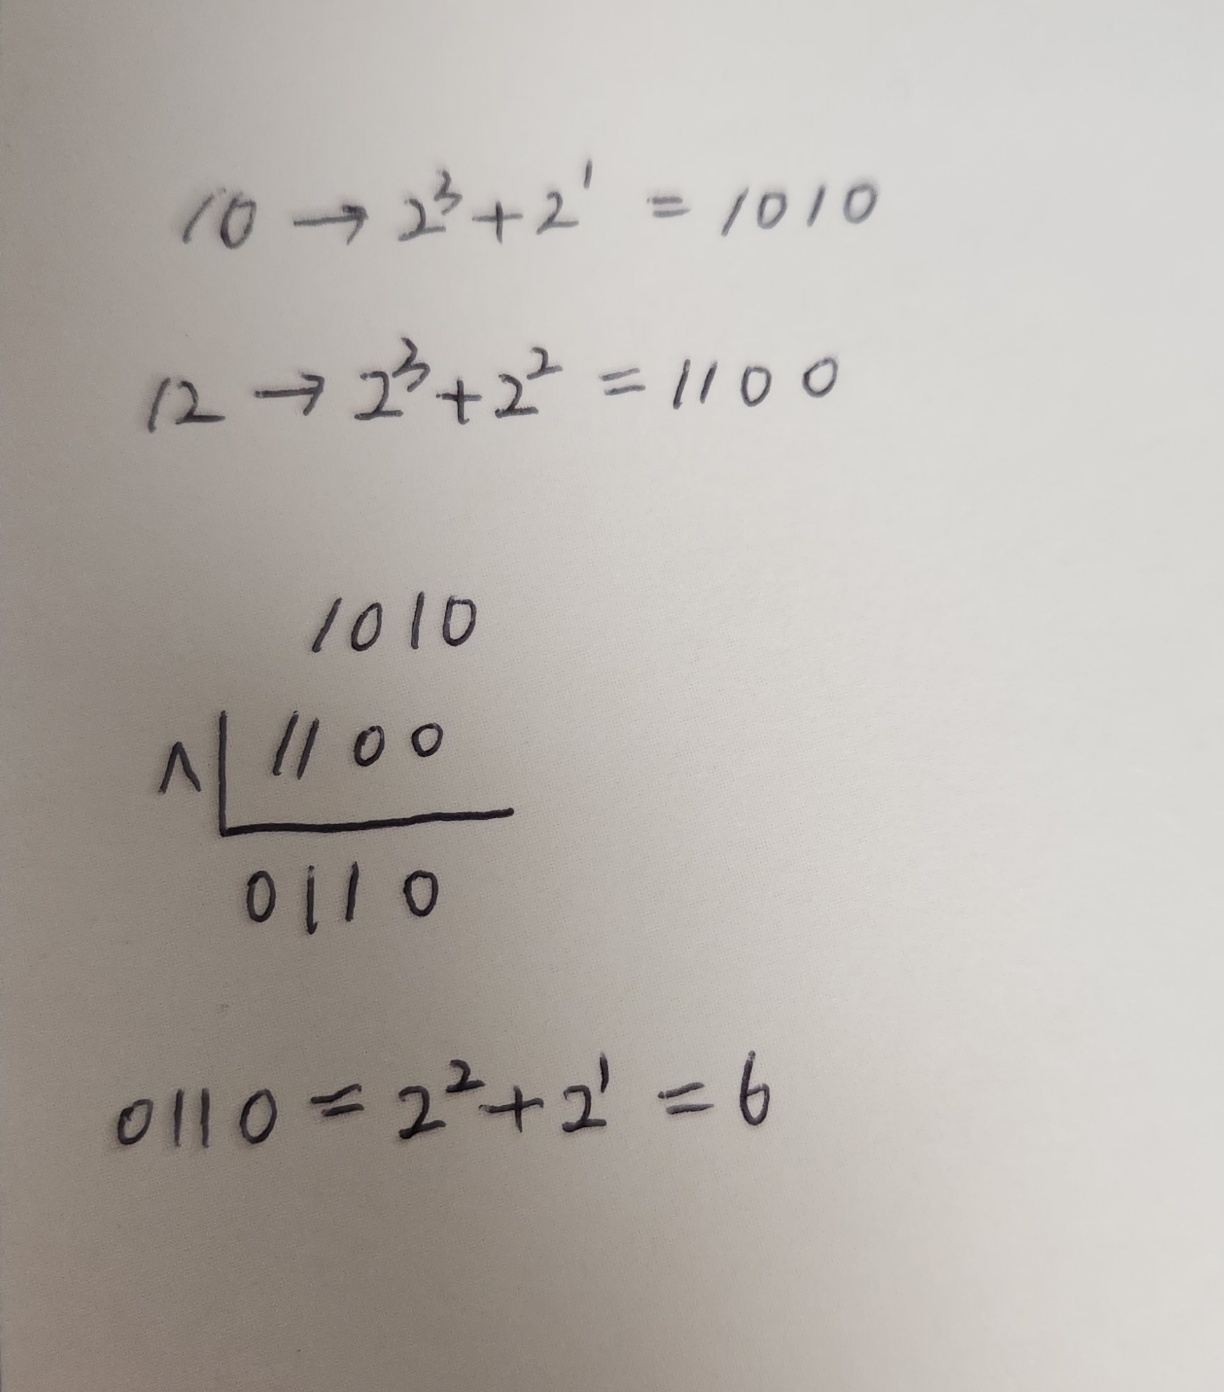 10 → 2³ + 2¹ = 1010
12 → 2³ + 2² = 1100
1010
^ 1100
0110
0110 = 2² + 2¹ = 6